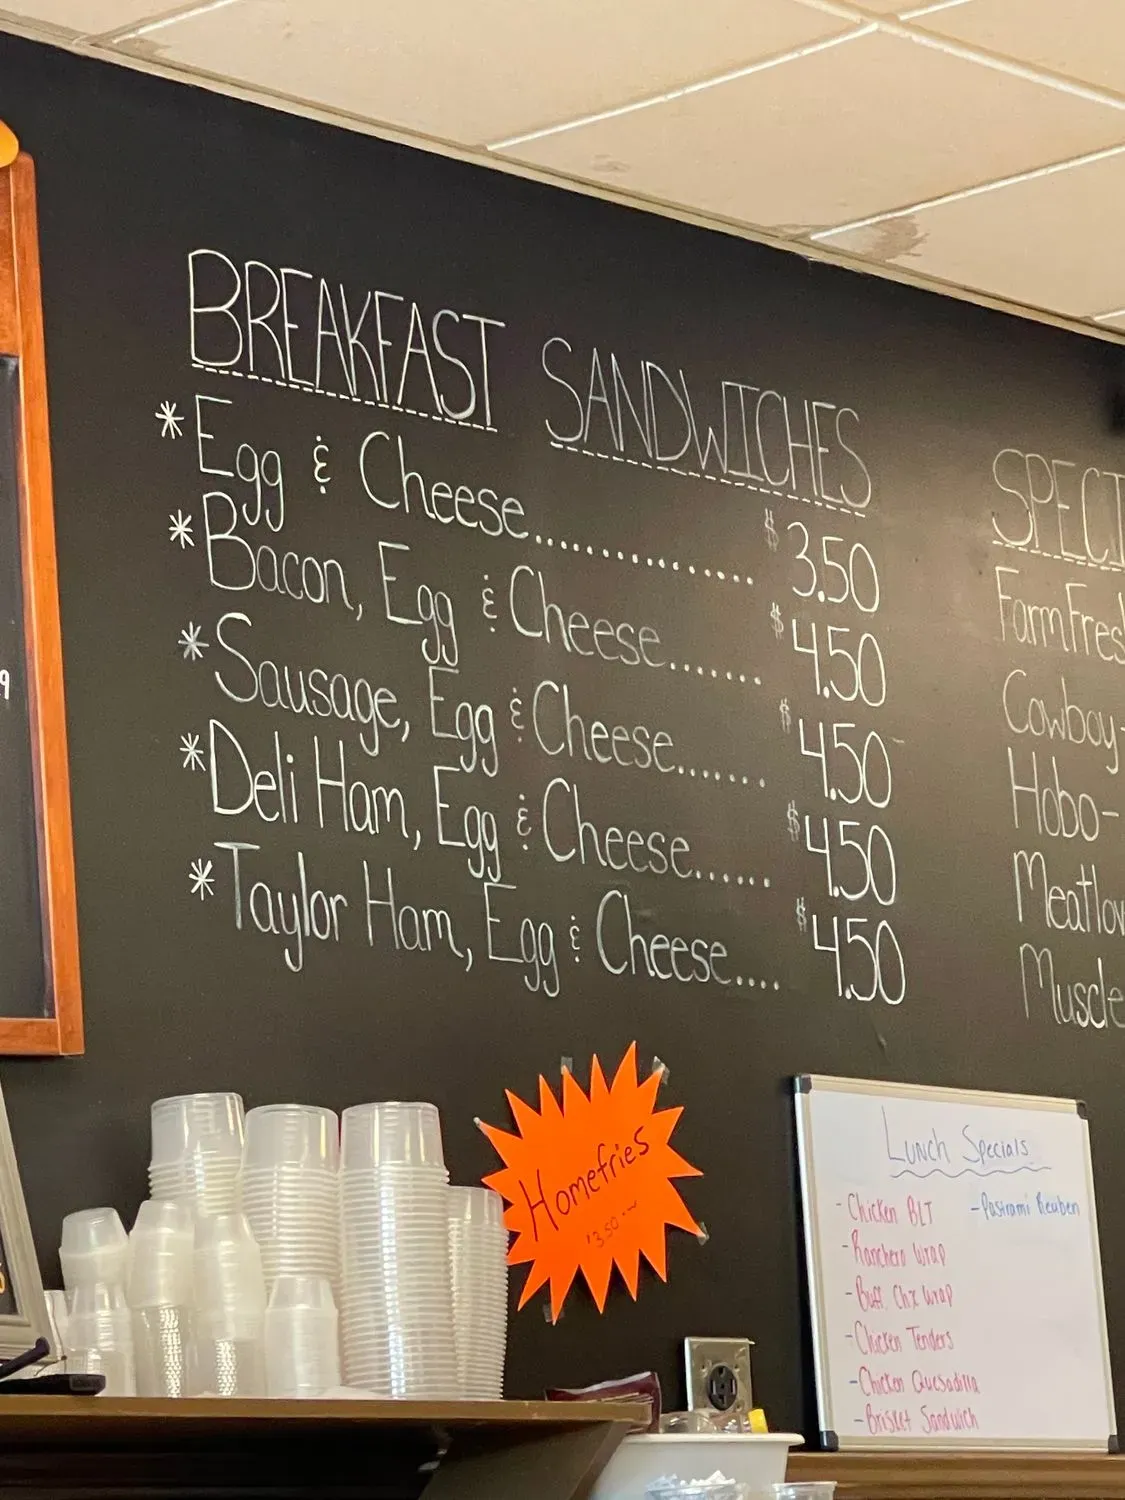 BREAKFAST SANDWICHES
*Egg & Cheese............... $3.50
*Bacon, Egg & Cheese....... $4.50
*Sausage, Egg & Cheese....... $4.50
*Deli Ham, Egg & Cheese...... $4.50
*Taylor Ham, Egg & Cheese.... $4.50
SPECI
Farm Fres
Cowboy-
Hobo-
Meatlov
Muscle
9
Homefries
$3.50
Lunch Specials
-Chicken BLT
-Ranchero Wrap
-Buff. Chx Wrap
-Chicken Tenders
-Chicken Quesadilla
-Brisket Sandwich
-Pastrami Reuben